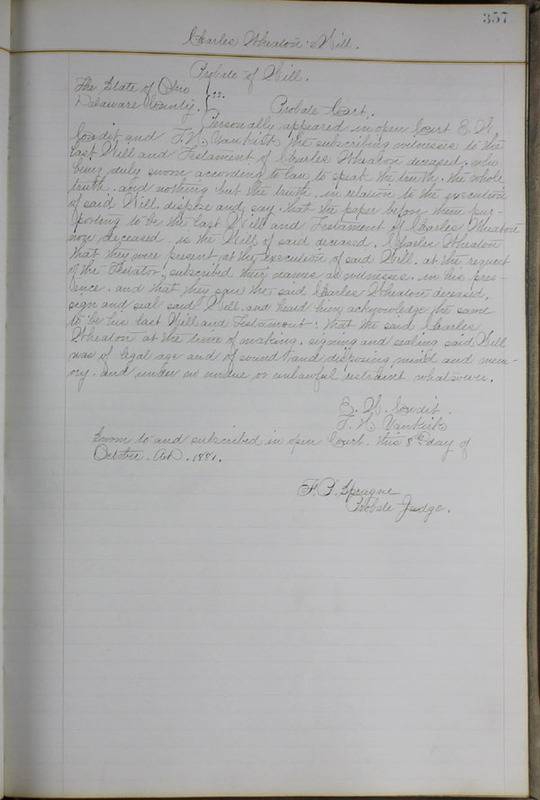 357
Charles Wheaton's Will.
Probate of Will.
The State of Ohio
Delaware County. } ss.
Probate Court.
Personally appeared in open Court E. H.
Condit and T. H. Vankirk the subscribing witnesses to the
Last Will and Testament of Charles Wheaton deceased, who
being duly sworn according to law to speak the truth, the whole
truth, and nothing but the truth, in relation to the execution
of said Will, dispose and say, that the paper before them pur-
porting to be the Last Will and Testament of Charles Wheaton
now deceased, is the Will of said deceased, Charles Wheaton
that they were present at the execution of said Will, at the request
of the Testator, subscribed their names as witnesses, in his pres-
ence, and that they saw the said Charles Wheaton deceased,
sign and seal said Will, and heard him acknowledge the same
to be his last Will and Testament: that the said Charles
Wheaton at the time of making, signing and sealing said Will
was of legal age and of sound and disposing mind and mem-
ory, and under no undue or unlawful restraint whatsoever.
E. H. Condit.
T. H. Vankirk
Sworn to and subscribed in open Court, this 8th day of
October, A.D. 1881.
F. P. Sprague
Probate Judge.